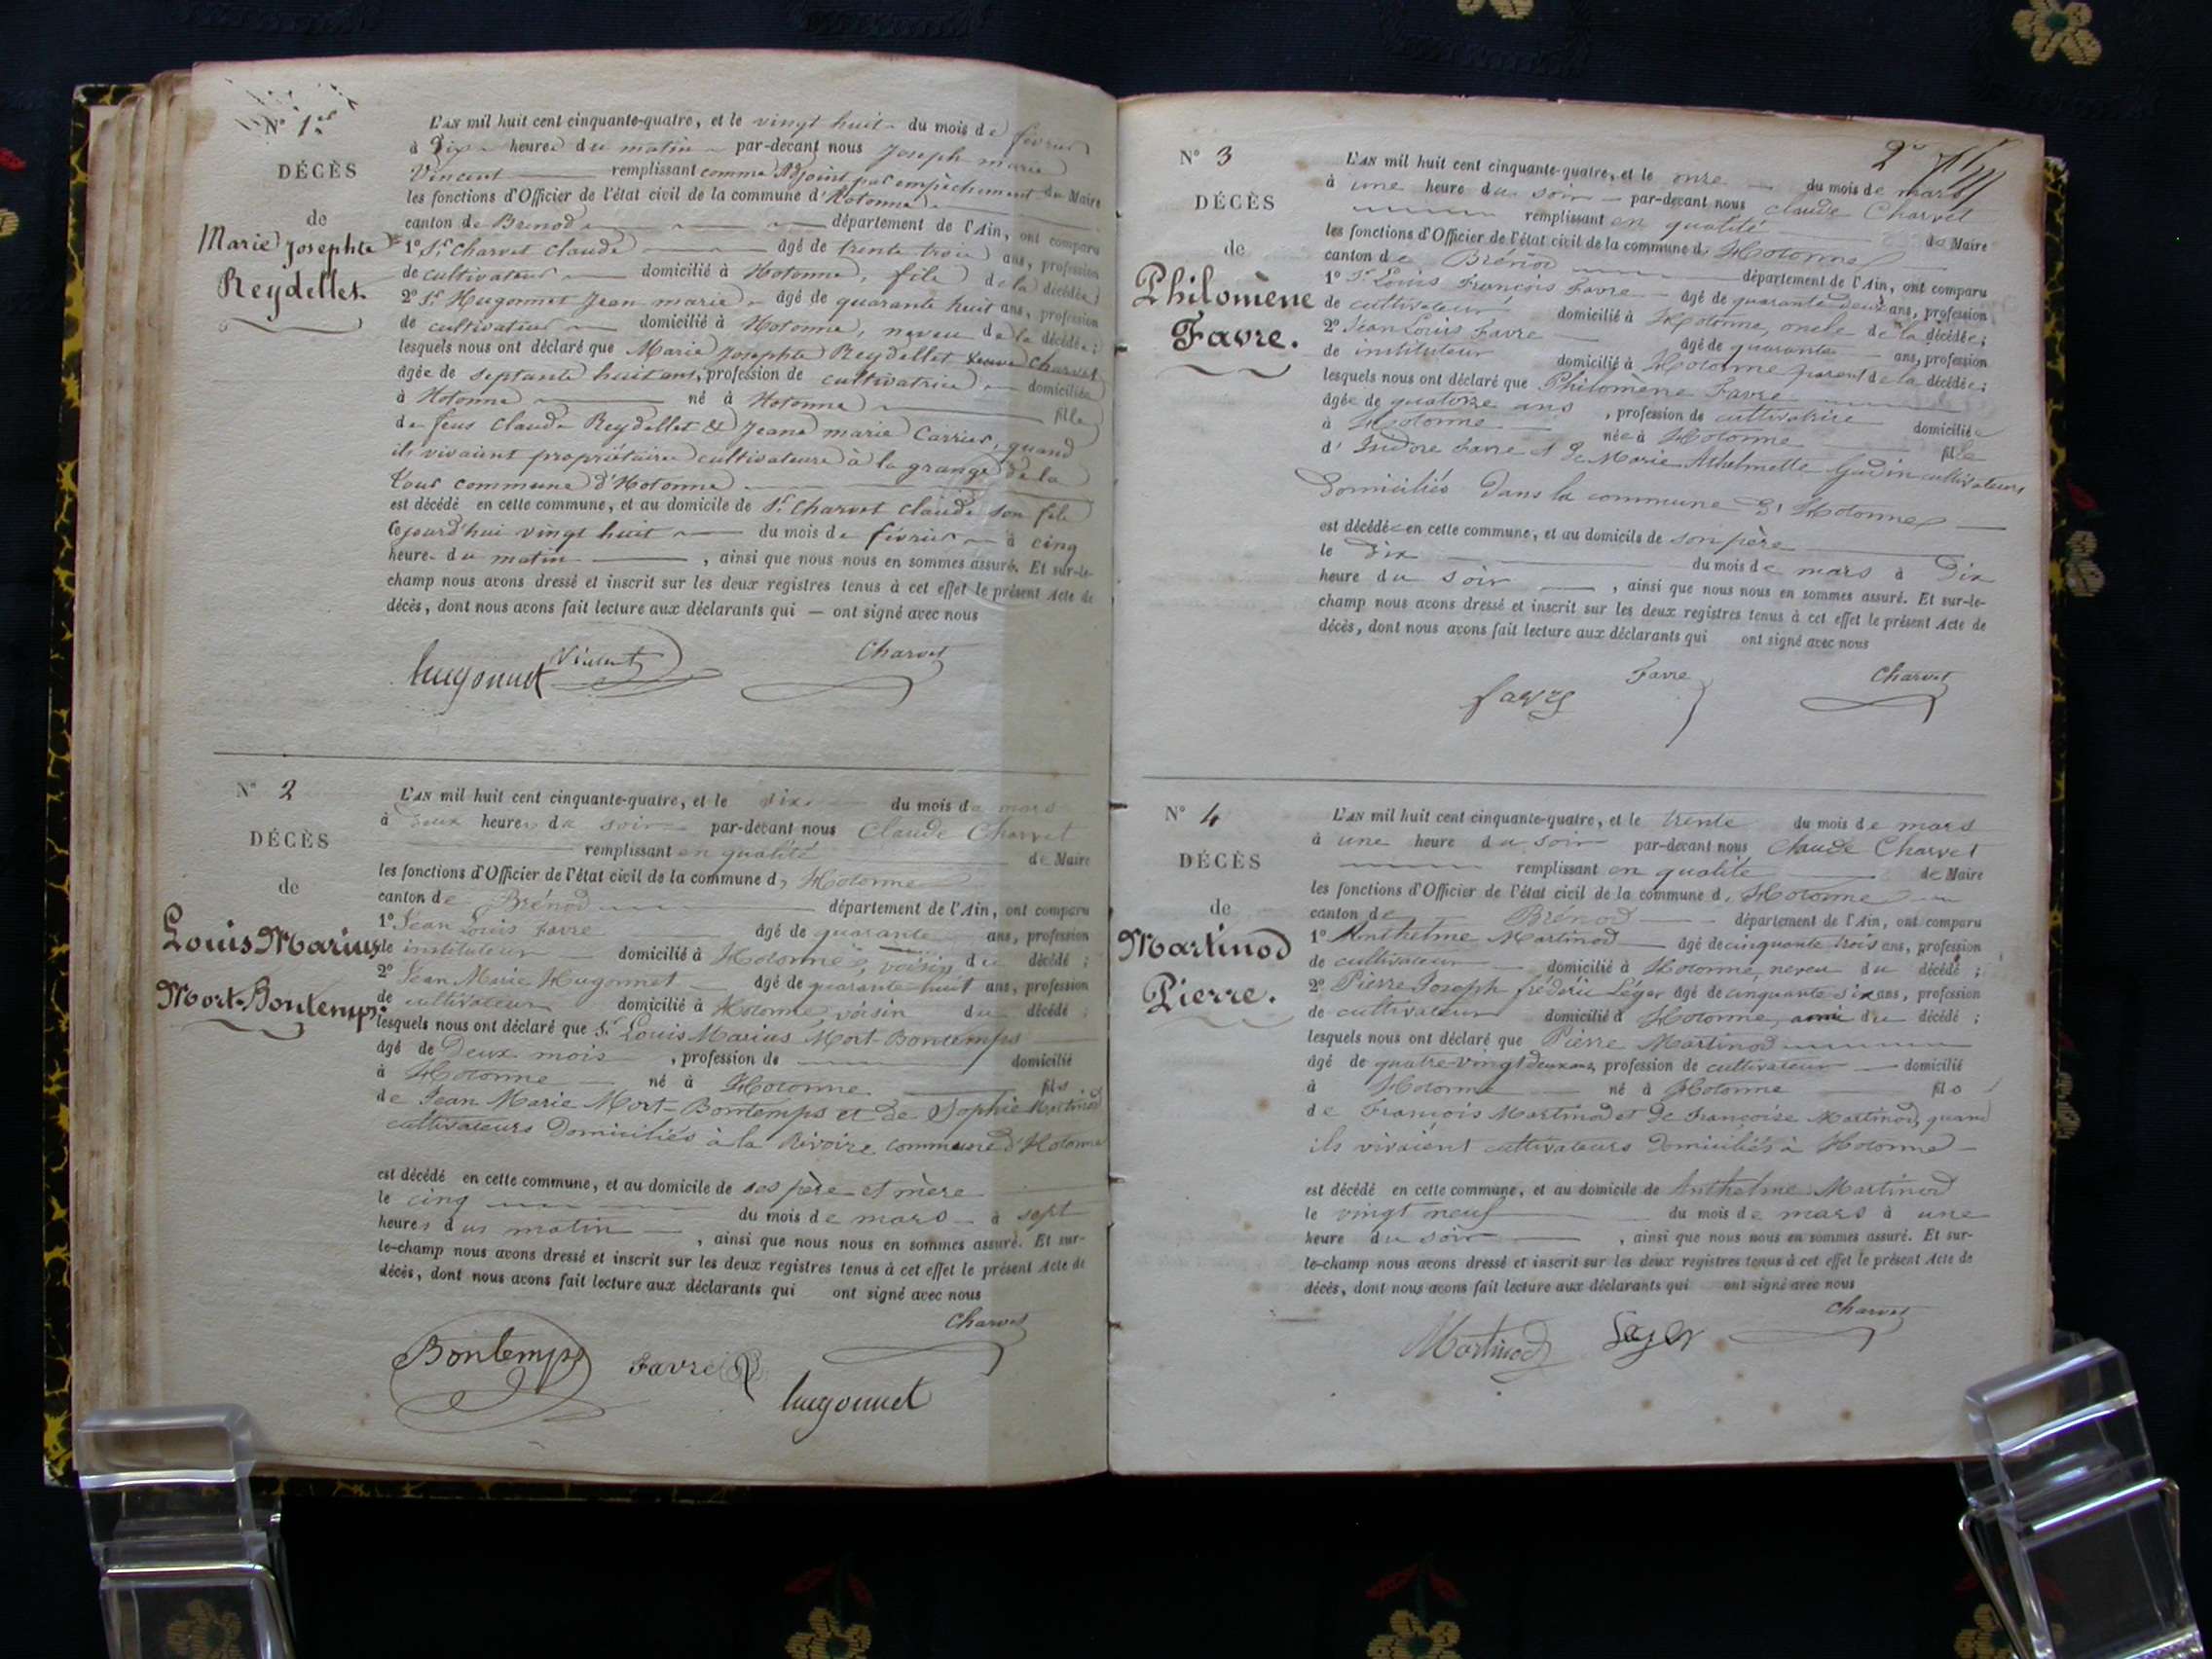 N° 1er
DÉCÈS
de
Marie Josephte
Reydellet
L'AN mil huit cent cinquante-quatre, et le vingt huit du mois de février
à Dix heures du matin par-devant nous Joseph marie
Vincent remplissant comme Adjoint par empêchement du Maire
les fonctions d'Officier de l'état civil de la commune d'Hotonne
canton de Brenod département de l'Ain, ont comparu
1° Sr Charvet Claude âgé de trente trois ans, profession
de cultivateur domicilié à Hotonne, fils de la décédée;
2° Sr Hugonnet Jean marie âgé de quarante huit ans, profession
de cultivateur domicilié à Hotonne, neveu de la décédée;
lesquels nous ont déclaré que Marie Josephte Reydellet veuve Charvet
âgée de septante huit ans, profession de cultivatrice domiciliée
à Hotonne né à Hotonne fille
de feus Claude Reydellet & Jeane marie Carrier, quand
ils vivaient propriétaires cultivateurs à la grange de la
Tour commune d'Hotonne
est décédé en cette commune, et au domicile de Sr Charvet Claude son fils
cejourd'hui vingt huit du mois de février à cinq
heures du matin , ainsi que nous nous en sommes assuré. Et sur-le-
champ nous avons dressé et inscrit sur les deux registres tenus à cet effet le présent Acte de
décès, dont nous avons fait lecture aux déclarants qui — ont signé avec nous
hugonnet Vincent Charvet
N° 2
DÉCÈS
de
Louis Marius
Mort-Bontemps.
L'AN mil huit cent cinquante-quatre, et le dix du mois de mars
à deux heures du soir par-devant nous Claude Charvet
remplissant en qualité de Maire
les fonctions d'Officier de l'état civil de la commune d' Hotonne
canton de Brénod département de l'Ain, ont comparu
1° Jean Louis Favre âgé de quarante ans, profession
de instituteur domicilié à Hotonne, voisin du décédé ;
2° Jean Marie Hugonnet âgé de quarante huit ans, profession
de cultivateur domicilié à Hotonne, voisin du décédé ;
lesquels nous ont déclaré que Sr Louis Marius Mort-Bontemps
âgé de Deux mois , profession de domicilié
à Hotonne né à Hotonne fils
de Jean Marie Mort-Bontemps et de Sophie Martinod
cultivateurs domiciliés à la Rivoire commune d'Hotonne
est décédé en cette commune, et au domicile de ses père et mère
le cinq du mois de mars à sept
heures du matin , ainsi que nous nous en sommes assuré. Et sur-
le-champ nous avons dressé et inscrit sur les deux registres tenus à cet effet le présent Acte de
décès, dont nous avons fait lecture aux déclarants qui ont signé avec nous
Charvet
Bontemps Favre
hugonnet
2e
N° 3
DÉCÈS
de
Philomène
Favre.
L'AN mil huit cent cinquante-quatre, et le onze du mois de mars
à une heure du soir par-devant nous Claude Charvet
remplissant en qualité de Maire
les fonctions d'Officier de l'état civil de la commune d' Hotonne
canton de Brénod département de l'Ain, ont comparu
1° Sr Louis François Favre âgé de quarante deux ans, profession
de cultivateur domicilié à Hotonne, oncle de la décédée;
2° Jean Louis Favre âgé de quarante ans, profession
de instituteur domicilié à Hotonne parent de la décédée;
lesquels nous ont déclaré que Philomène Favre
âgée de quatorze ans , profession de cultivatrice domiciliée
à Hotonne née à Hotonne fille
d' Isidore Favre et de Marie Anthelmette Godin cultivateurs
Domiciliés Dans la commune d'Hotonne
est décédée en cette commune, et au domicile de son père
le Dix du mois de mars à Dix
heure du soir , ainsi que nous nous en sommes assuré. Et sur-le-
champ nous avons dressé et inscrit sur les deux registres tenus à cet effet le présent Acte de
décès, dont nous avons fait lecture aux déclarants qui ont signé avec nous
favre Favre Charvet
N° 4
DÉCÈS
de
Martinod
Pierre.
L'AN mil huit cent cinquante-quatre, et le trente du mois de mars
à une heure du soir par-devant nous Claude Charvet
remplissant en qualité de Maire
les fonctions d'Officier de l'état civil de la commune d' Hotonne
canton de Brénod département de l'Ain, ont comparu
1° Anthelme Martinod âgé de cinquante trois ans, profession
de cultivateur domicilié à Hotonne, neveu du décédé ;
2° Pierre Joseph frédéric Léger âgé de cinquante six ans, profession
de cultivateur domicilié à Hotonne, ami du décédé ;
lesquels nous ont déclaré que Pierre Martinod
âgé de quatre-vingt deux ans, profession de cultivateur domicilié
à Hotonne né à Hotonne fils
de François Martinod et de Françoise Martinod, quand
ils vivaient cultivateurs domiciliés à Hotonne
est décédé en cette commune, et au domicile de Anthelme Martinod
le vingt neuf du mois de mars à une
heure du soir , ainsi que nous nous en sommes assuré. Et sur-
le-champ nous avons dressé et inscrit sur les deux registres tenus à cet effet le présent Acte de
décès, dont nous avons fait lecture aux déclarants qui ont signé avec nous
Martinod Leger Charvet